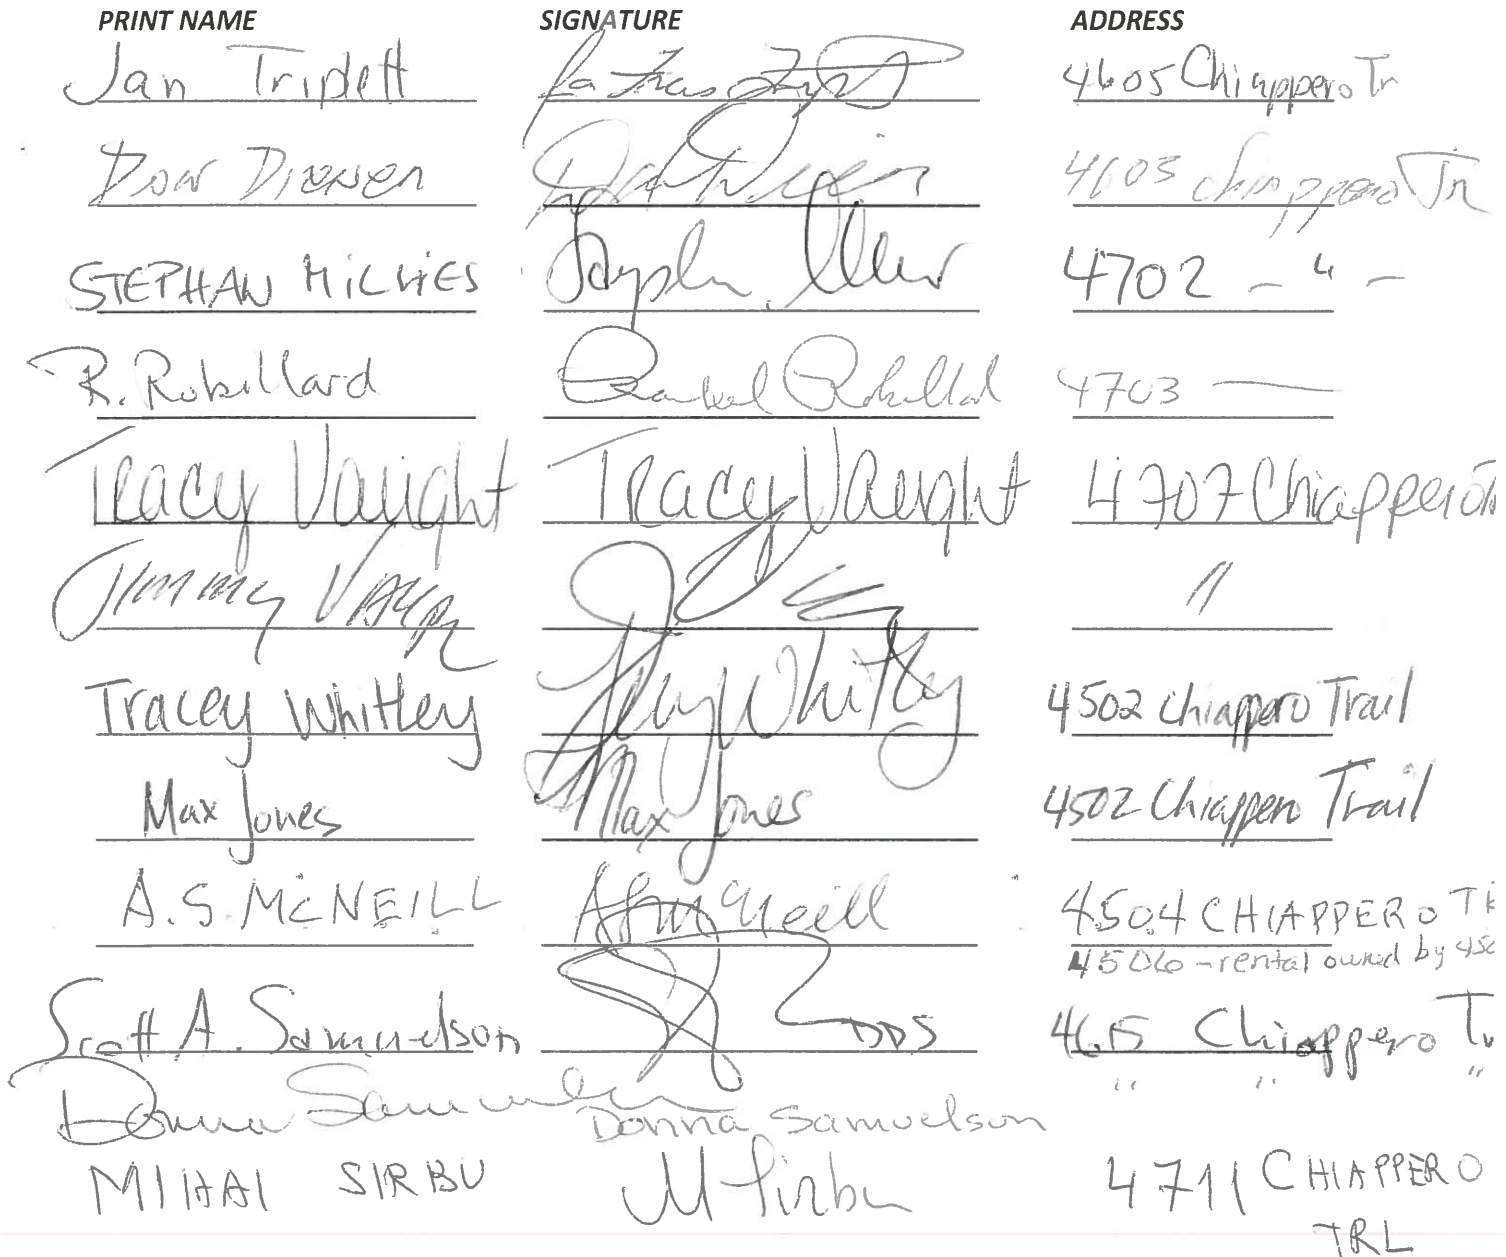 PRINT NAME SIGNATURE ADDRESS
Jan Triplett 4605 Chiappero Tr
Don Diener 4603 Chiappero Tr
STEPHAN MILVIES 4702 - " -
R. Robillard Rachel Robillard 4703 —
Tracy Vaught Tracy Vaught 4707 Chiappero Tr
Jimmy "
Tracey Whitley Whitley 4502 Chiappero Trail
Max Jones Max Jones 4502 Chiappero Trail
A.S. McNEILL McNeill 4504 CHIAPPERO TR
4506 - rental owned by
Scott A. Samuelson DDS 4615 Chiappero Tr
Donna Samuelson Donna Samuelson " " "
MIHAI SIRBU M Sirbu 4711 CHIAPPERO
TRL